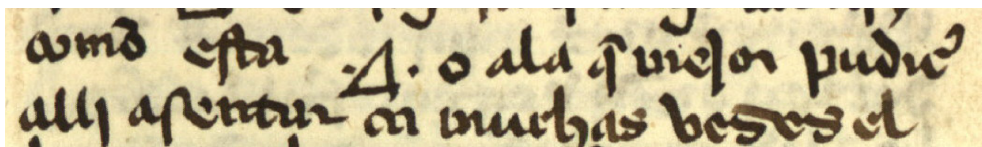 como esta .4. o ala q̃ mejor pudieᷣ
alli asentar ca muchas veses el